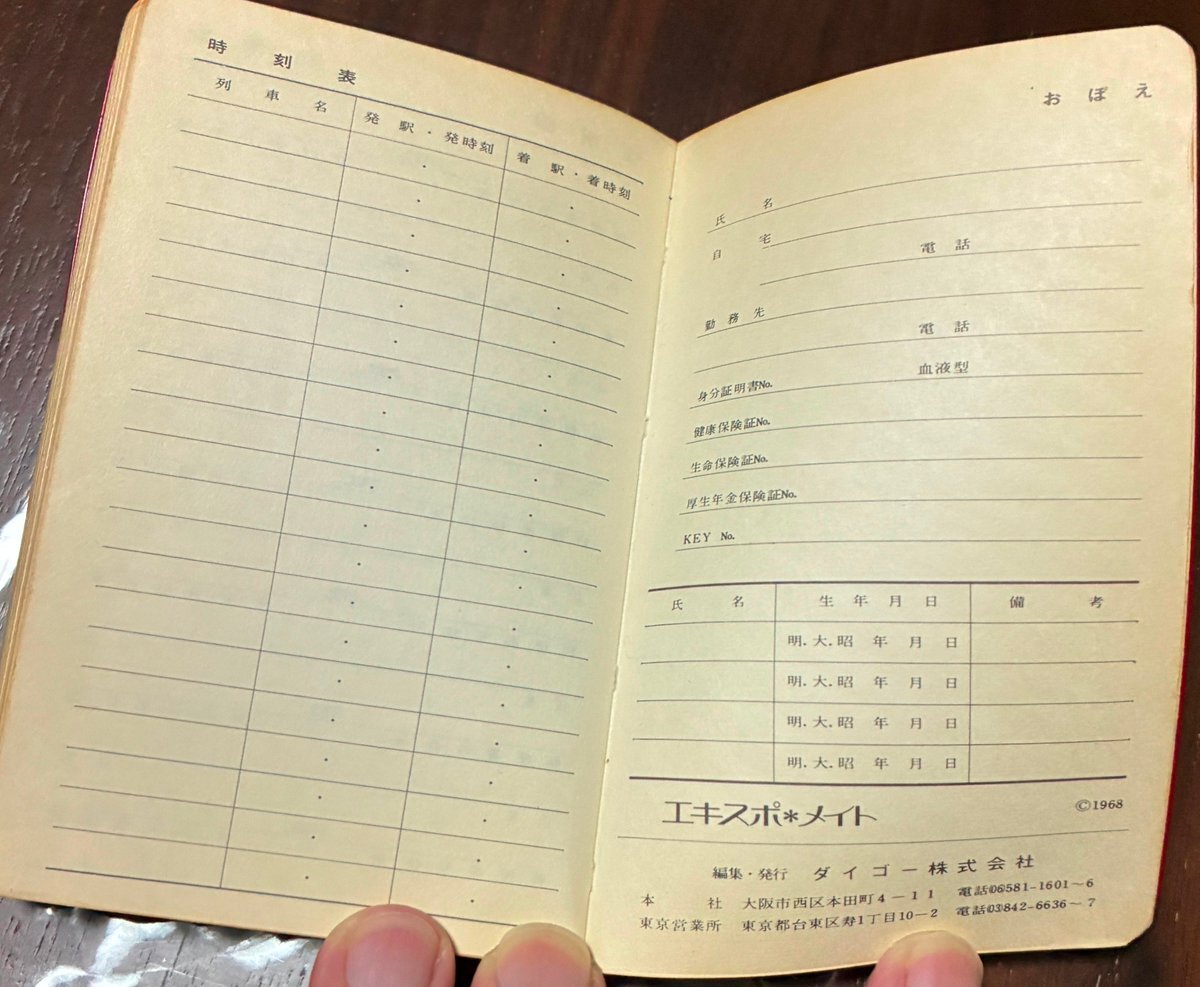 時刻表
列車名 発駅・発時刻 着駅・着時刻
おぼえ
氏名
自宅 電話
勤務先 電話
身分証明書No. 血液型
健康保険証No.
生命保険証No.
厚生年金保険証No.
KEY No.
氏名 生年月日 備考
明.大.昭 年 月 日
明.大.昭 年 月 日
明.大.昭 年 月 日
明.大.昭 年 月 日
エキスポ*メイト ©1968
編集・発行 ダイゴー株式会社
本社 大阪市西区本田町4-11 電話(06)581-1601~6
東京営業所 東京都台東区寿1丁目10-2 電話(03)842-6636~7